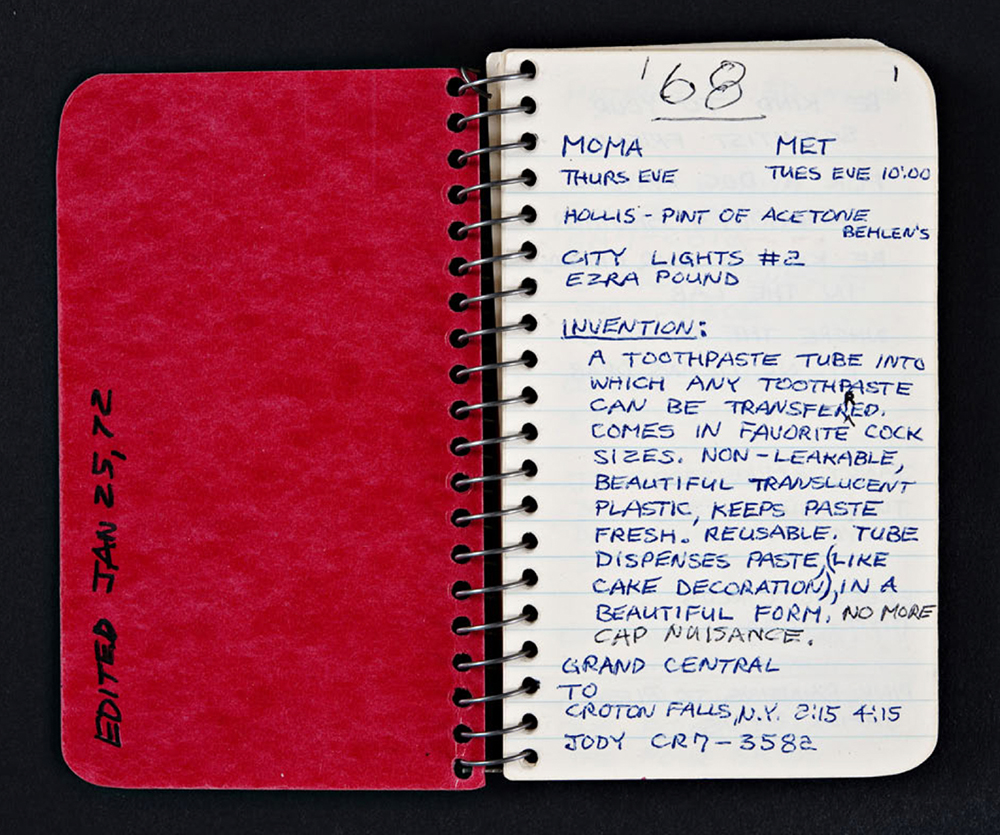 EDITED JAN 25, 72
'68
1
MOMA MET
THURS EVE TUES EVE 10:00
HOLLIS - PINT OF ACETONE
BEHLEN'S
CITY LIGHTS #2
EZRA POUND
INVENTION:
A TOOTHPASTE TUBE INTO
WHICH ANY TOOTHPASTE
CAN BE TRANSFERRED.
COMES IN FAVORITE COCK
SIZES. NON-LEAKABLE,
BEAUTIFUL TRANSLUCENT
PLASTIC, KEEPS PASTE
FRESH. REUSABLE. TUBE
DISPENSES PASTE, (LIKE
CAKE DECORATION), IN A
BEAUTIFUL FORM. NO MORE
CAP NUISANCE.
GRAND CENTRAL
TO
CROTON FALLS, N.Y. 2:15 4:15
JODY CR7-3582